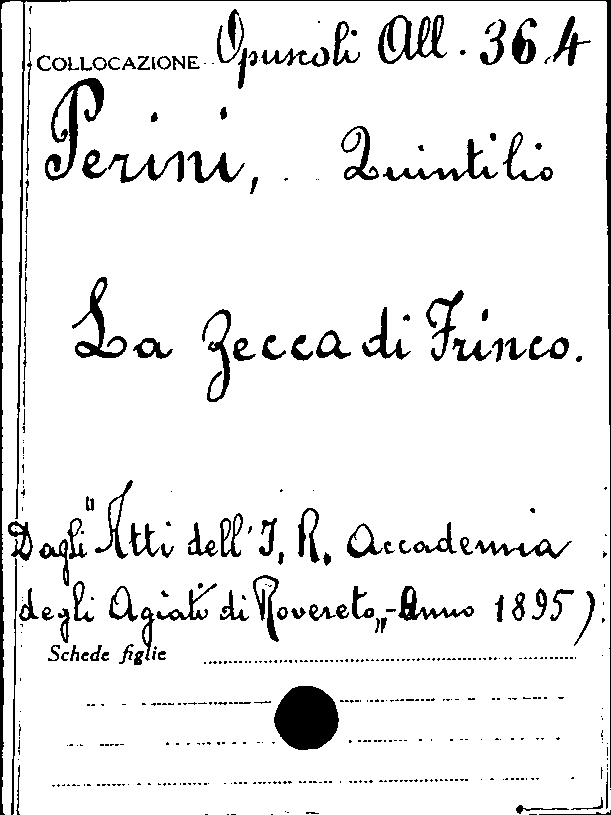 COLLOCAZIONE Opuscoli All. 36.4
Perini, Quintilio
La Zecca di Frinco.
Dagli "Atti dell' I. R. Accademia
degli Agiati di Rovereto„-Anno 1895).
Schede figlie